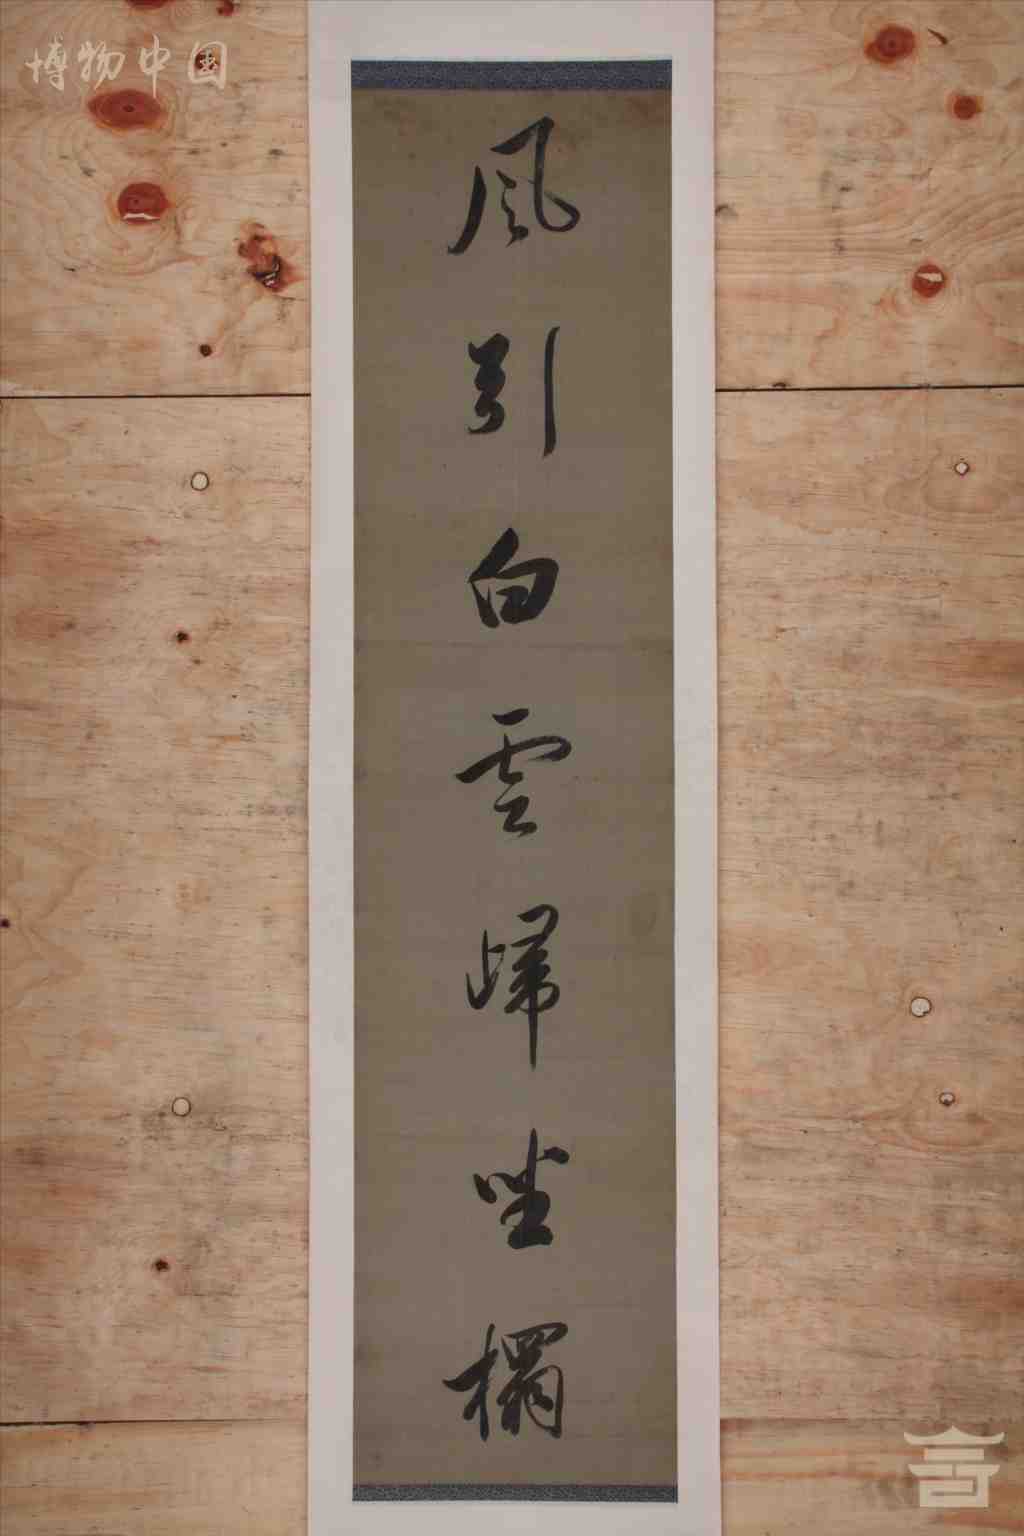 博物中国
風引白雲歸坐榻